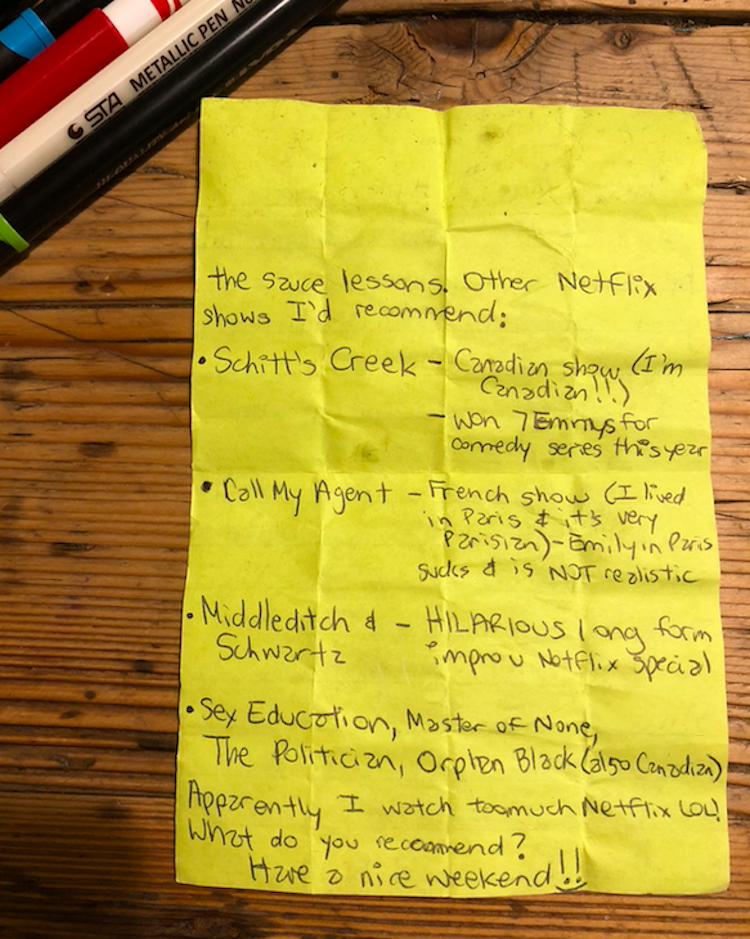 STA METALLIC PEN
the sauce lessons. Other Netflix
shows I'd recommend:
• Schitt's Creek - Canadian show (I'm
Canadian!!)
- won 7 Emmys for
comedy series this year
• Call My Agent - French show (I lived
in Paris & it's very
Parisian) - Emily in Paris
sucks & is NOT realistic
• Middleditch & - HILARIOUS long form
Schwartz improv Netflix special
• Sex Education, Master of None,
The Politician, Orphan Black (also Canadian)
Apparently I watch too much Netflix LOL!
What do you recommend?
Have a nice weekend!!